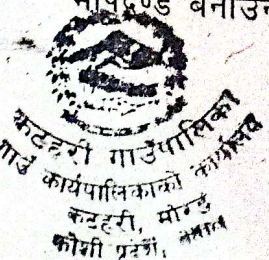 मापदण्ड बनाउन
कटहरी गाउँपालिका
गाउँ कार्यपालिकाको कार्यालय
कटहरी, मोरङ
कोशी प्रदेश, नेपाल